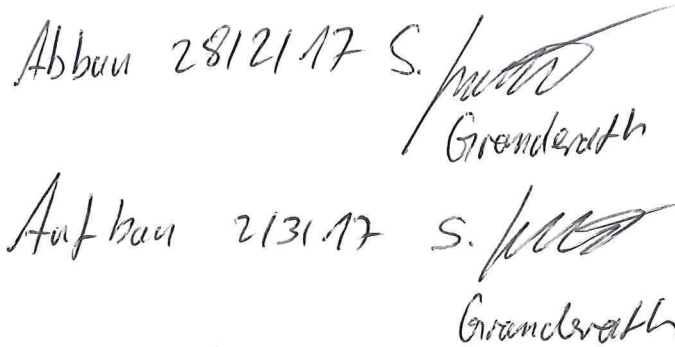 Abbau 28/2/17 S.
Granderath
Aufbau 2/3/17 S.
Granderath